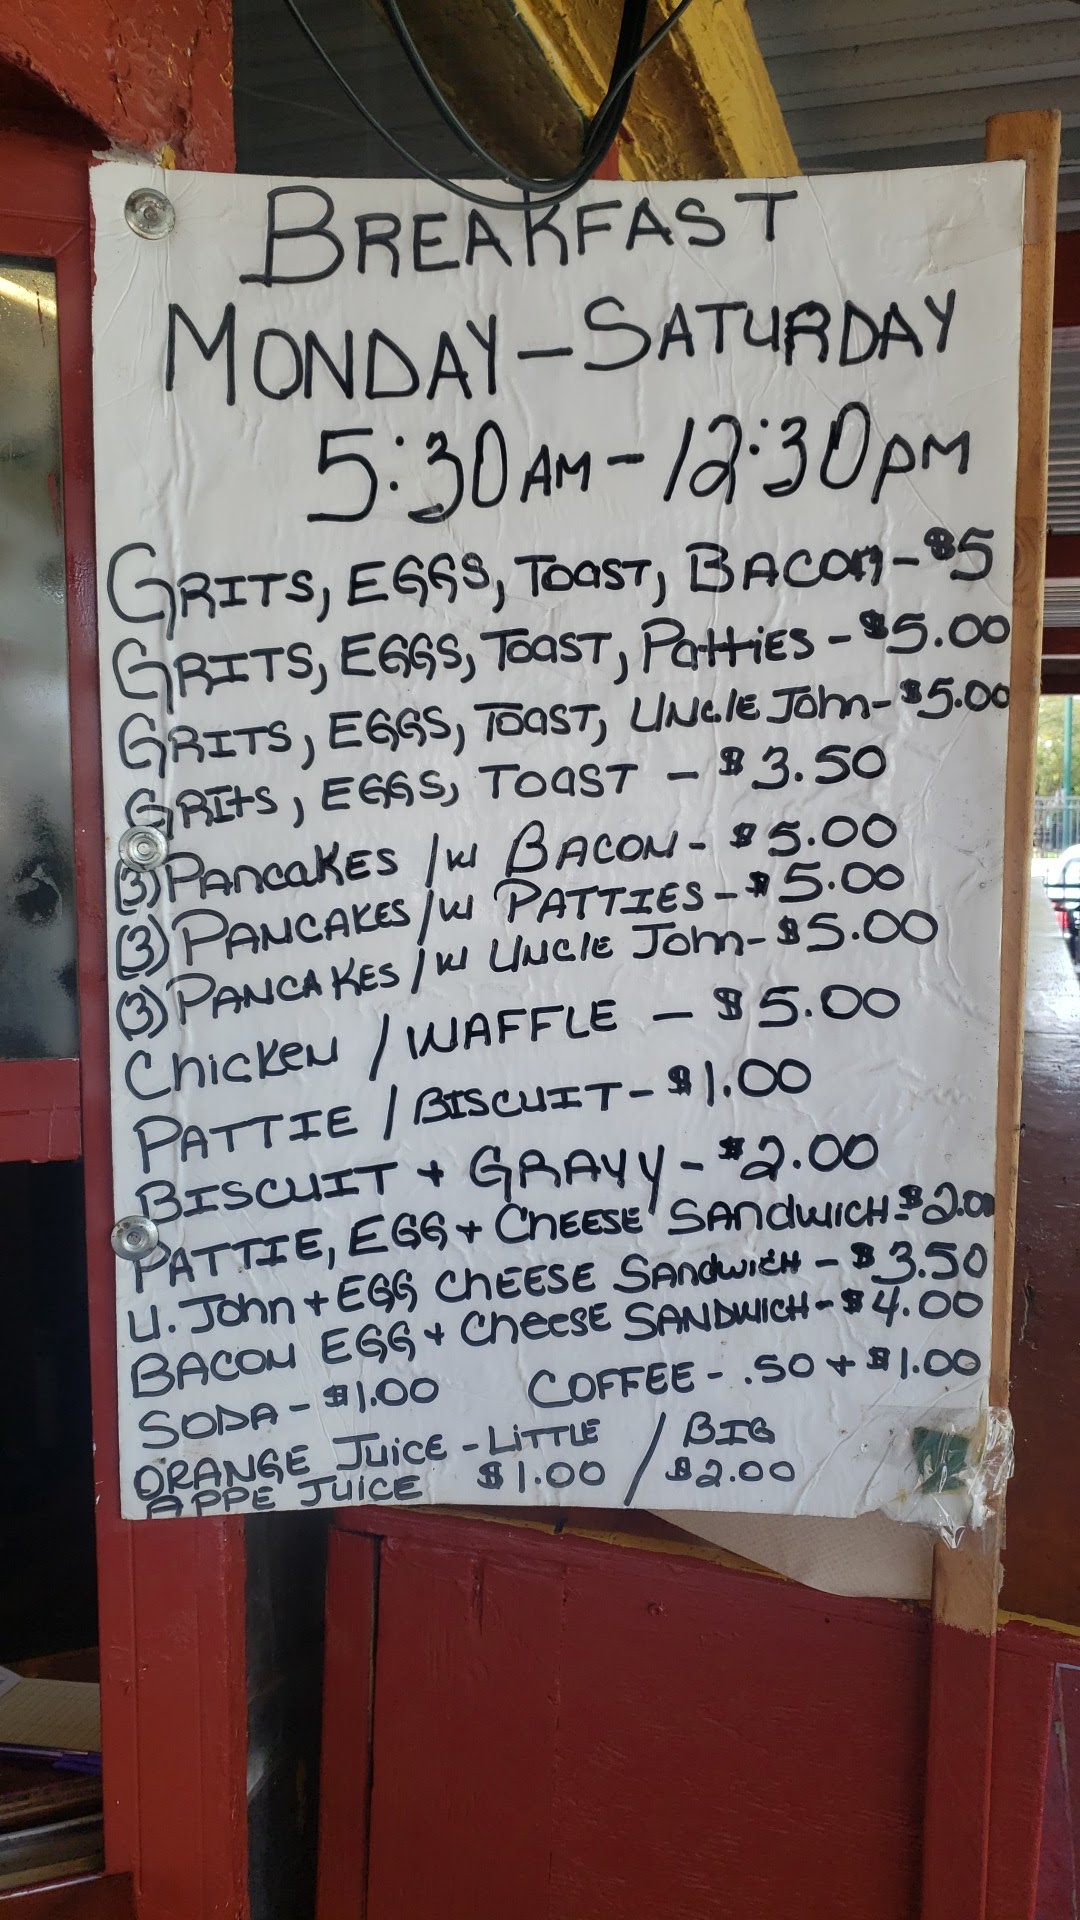 BREAKFAST
MONDAY - SATURDAY
5:30 AM - 12:30 PM
GRITS, EGGS, TOAST, BACON - $5
GRITS, EGGS, TOAST, Patties - $5.00
GRITS, EGGS, TOAST, UNCLE John - $5.00
GRItS, EGGS, TOAST - $3.50
(3) PANCAKES /W BACON - $5.00
(3) PANCAKES /W PATTIES - $5.00
(3) PANCAKES /W UNCLE John - $5.00
Chicken / WAFFLE - $5.00
PATTIE / BISCUIT - $1.00
BISCUIT + GRAVY - $2.00
PATTIE, EGG + CHEESE SANdWICH - $2.00
U. John + EGG CHEESE SANdWICH - $3.50
BACON EGG + CheESE SANDWICH - $4.00
SODA - $1.00 COFFEE - .50 + $1.00
ORANGE JuicE - LITTLE / BIG
APPE JUICE $1.00 / $2.00